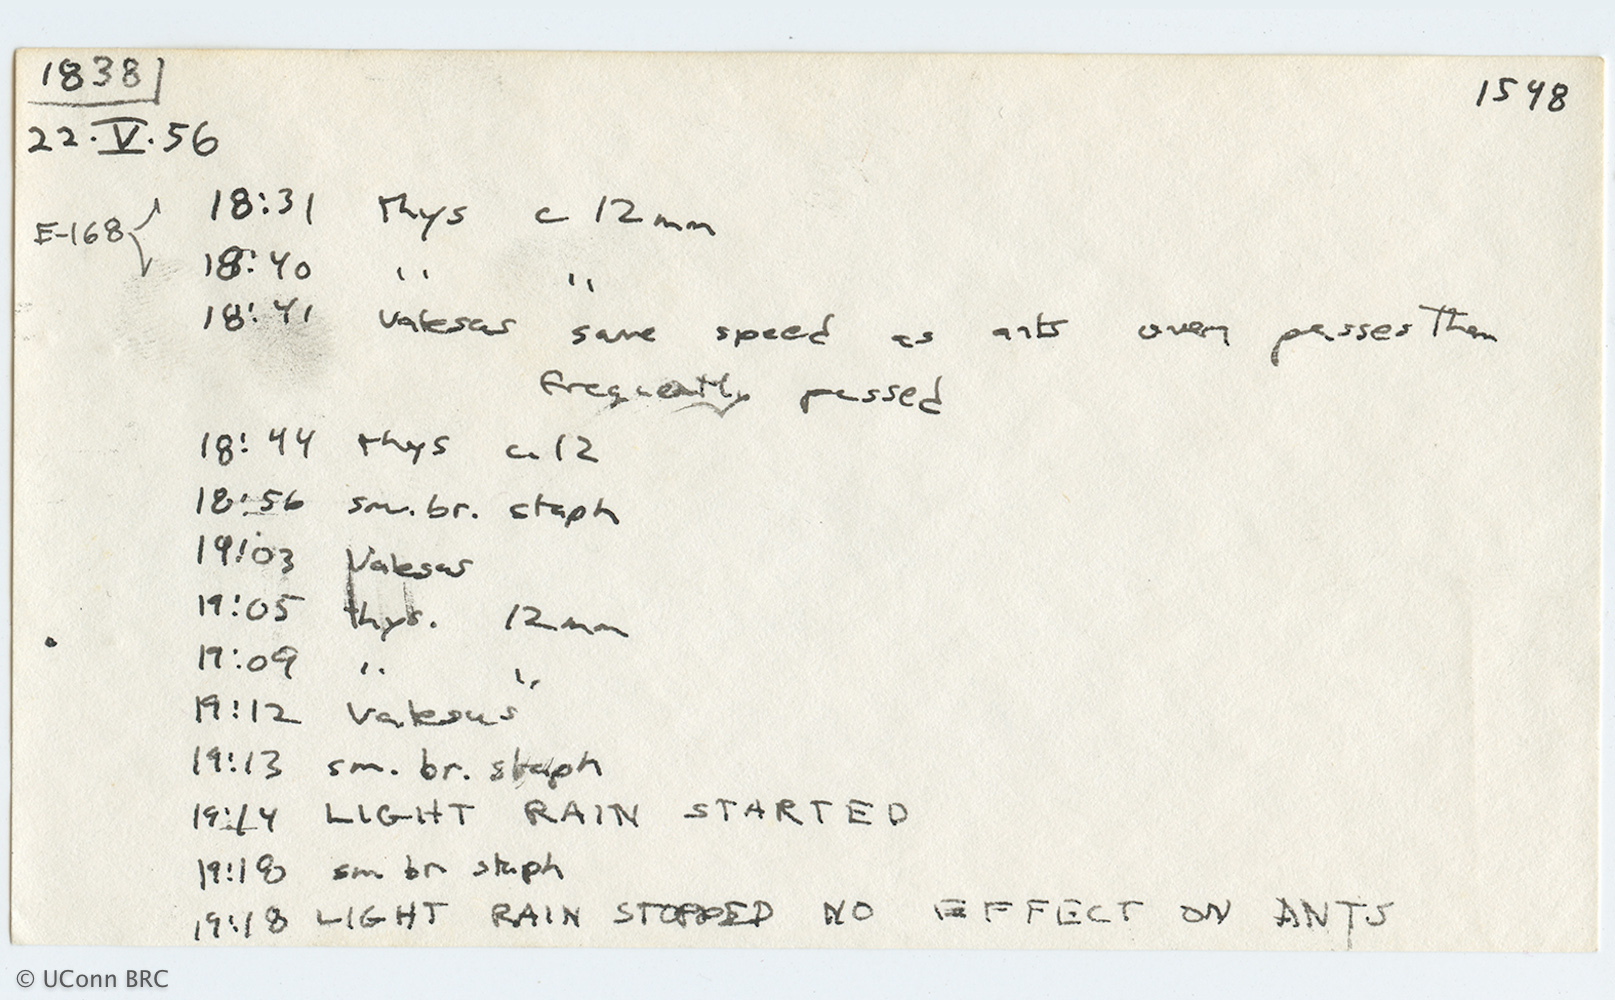 1838
1548
22.V.56
E-168
18:31 thys c 12mm
18:40 " "
18:41 Vatesus same speed as ants over passes them
frequently passed
18:44 thys c. 12
18:56 sm. br. staph
19:03 Vatesus
19:05 thys. 12mm
19:09 " "
19:12 Vatesus
19:13 sm. br. staph
19:14 LIGHT RAIN STARTED
19:18 sm br staph
19:18 LIGHT RAIN STOPPED NO EFFECT ON ANTS
© UConn BRC